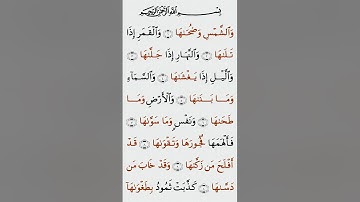 بِسْمِ ٱللَّهِ ٱلرَّحْمَٰنِ ٱلرَّحِيمِ
وَٱلشَّمْسِ وَضُحَىٰهَا ۝ وَٱلْقَمَرِ إِذَا
تَلَىٰهَا ۝ وَٱلنَّهَارِ إِذَا جَلَّىٰهَا ۝
وَٱلَّيْلِ إِذَا يَغْشَىٰهَا ۝ وَٱلسَّمَآءِ
وَمَا بَنَىٰهَا ۝ وَٱلْأَرْضِ وَمَا
طَحَىٰهَا ۝ وَنَفْسٍ وَمَا سَوَّىٰهَا ۝
فَأَلْهَمَهَا فُجُورَهَا وَتَقْوَىٰهَا ۝ قَدْ
أَفْلَحَ مَن زَكَّىٰهَا ۝ وَقَدْ خَابَ مَن
دَسَّىٰهَا ۝ كَذَّبَتْ ثَمُودُ بِطَغْوَىٰهَآ